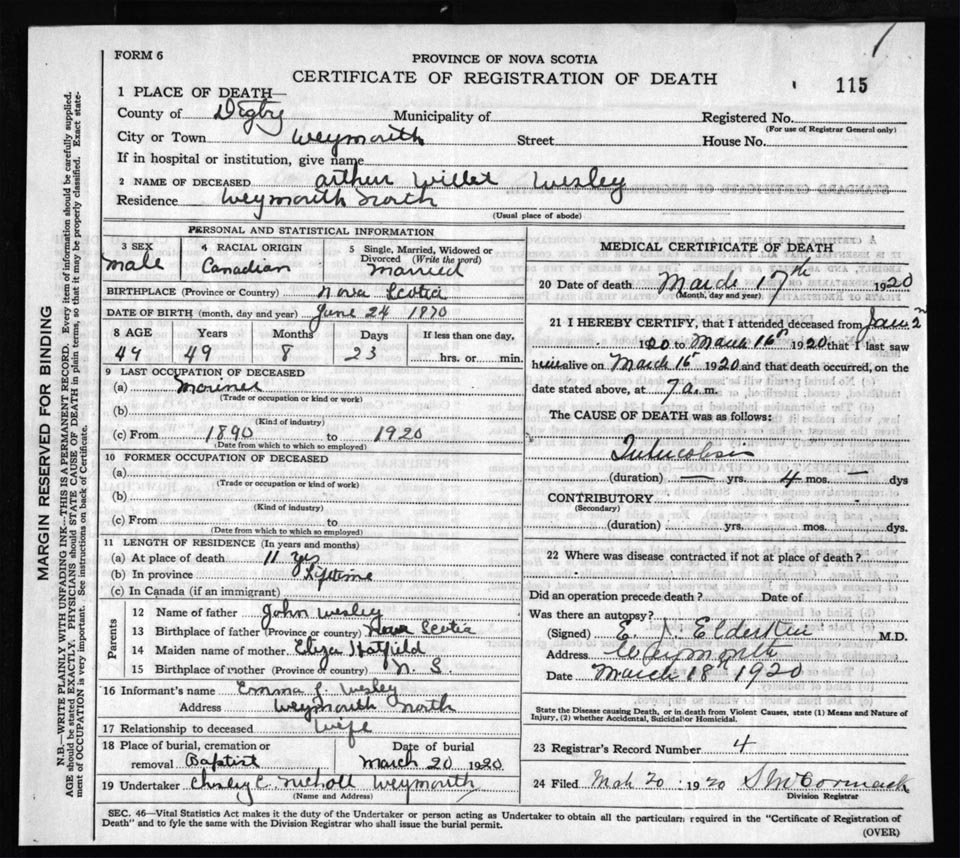 FORM 6
PROVINCE OF NOVA SCOTIA
CERTIFICATE OF REGISTRATION OF DEATH
115
1 PLACE OF DEATH—
County of Digby Municipality of Registered No.
(For use of Registrar General only)
City or Town Weymouth Street House No.
If in hospital or institution, give name
2 NAME OF DECEASED Arthur Willet Wesley
Residence Weymouth North
(Usual place of abode)
PERSONAL AND STATISTICAL INFORMATION
3 SEX 4 RACIAL ORIGIN 5 Single, Married, Widowed or Divorced (Write the word)
Male Canadian Married
BIRTHPLACE (Province or Country) Nova Scotia
DATE OF BIRTH (month, day and year) June 24 1870
8 AGE Years Months Days If less than one day,
49 49 8 23 hrs. or min.
9 LAST OCCUPATION OF DECEASED
(a) Mariner
(Trade or occupation or kind or work)
(b)
(Kind of industry)
(c) From 1890 to 1920
(Date from which to which so employed)
10 FORMER OCCUPATION OF DECEASED
(a)
(Trade or occupation or kind of work)
(b)
(Kind of industry)
(c) From to
(Date from which to which so employed)
11 LENGTH OF RESIDENCE (In years and months)
(a) At place of death 11 yrs
(b) In province Lifetime
(c) In Canada (if an immigrant)
Parents
12 Name of father John Wesley
13 Birthplace of father (Province or country) Nova Scotia
14 Maiden name of mother Eliza Hatfield
15 Birthplace of mother (Province or country) N. S.
16 Informant's name Emma J. Wesley
Address Weymouth North
17 Relationship to deceased Wife
18 Place of burial, cremation or removal Baptist
Date of burial March 20 1920
19 Undertaker C. Nicholl Weymouth
(Name and Address)
MEDICAL CERTIFICATE OF DEATH
20 Date of death March 17th 1920
(Month, day and year)
21 I HEREBY CERTIFY, that I attended deceased from Jan 2n
1920 to March 16th 1920 that I last saw
him alive on March 16th 1920 and that death occurred, on the
date stated above, at 7 a. m.
The CAUSE OF DEATH was as follows:
Tuberculosis
(duration) — yrs. 4 mos. — dys
CONTRIBUTORY
(Secondary)
(duration) yrs. mos. dys.
22 Where was disease contracted if not at place of death?
Did an operation precede death? Date of
Was there an autopsy?
(Signed) E. J. Elderkin M.D.
Address Weymouth
Date March 18th 1920
State the Disease causing Death, or in death from Violent Causes, state (1) Means and Nature of
Injury, (2) whether Accidental, Suicidal or Homicidal.
23 Registrar's Record Number 4
24 Filed Mch 20 1920 S McCormack
Division Registrar
SEC. 46—Vital Statistics Act makes it the duty of the Undertaker or person acting as Undertaker to obtain all the particulars required in the "Certificate of Registration of
Death" and to fyle the same with the Division Registrar who shall issue the burial permit.
(OVER)
MARGIN RESERVED FOR BINDING
N.B.—WRITE PLAINLY WITH UNFADING INK—THIS IS A PERMANENT RECORD. Every item of information should be carefully supplied.
AGE should be stated EXACTLY. PHYSICIANS should STATE CAUSE OF DEATH in plain terms, so that it may be properly classified. Exact state-
ment of OCCUPATION is very important. See instructions on back of Certificate.